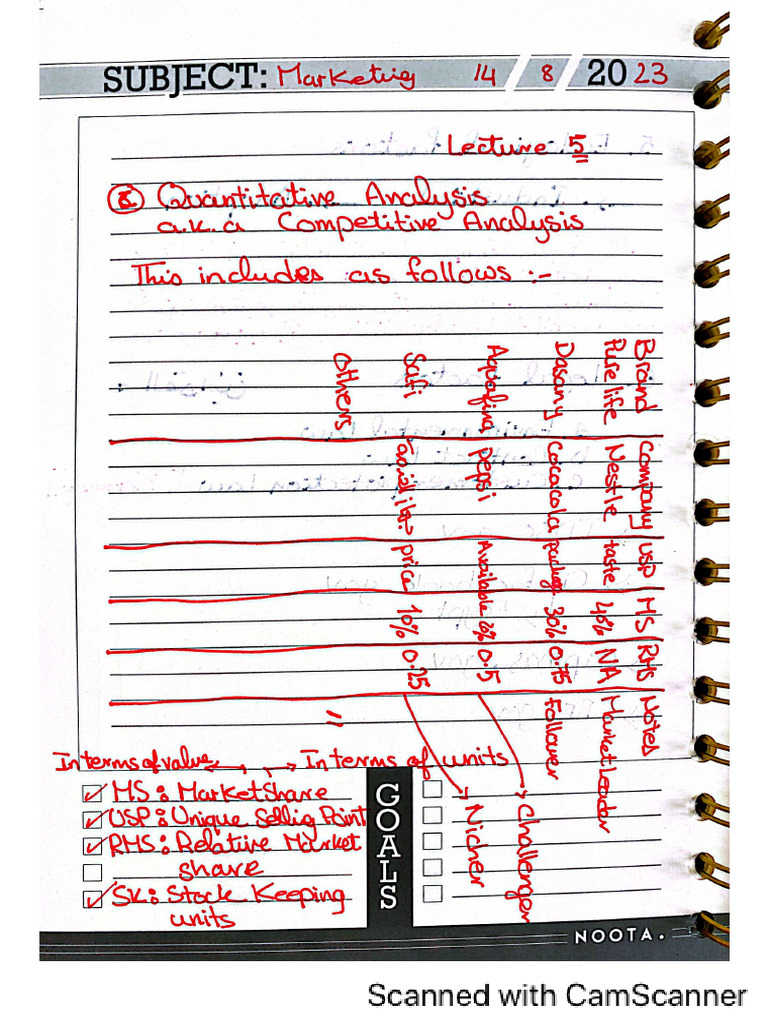 SUBJECT: Marketing 14 / 8 / 2023
Lecture 5
Quantitative Analysis
a.k.a Competitive Analysis
This includes as follows :-
Brand Company USP MS RMS Notes
Pure life Nestle taste NA Market Leader
Dasany Cococola 30% 0.75 Follower
Aquafina pepsi Available 0.5 Challenger
Safi price 10% 0.25 Nicher
Others "
In terms of value In terms of units
MS: Market Share
USP: Unique Sellig Point
RMS: Relative Market
share
SK: Stock Keeping
units
GOALS
NOOTA.
Scanned with CamScanner